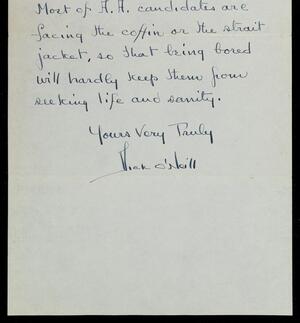 Most of A.A. candidates are
facing the coffin or the strait
jacket, so that being bored
will hardly keep them from
seeking life and sanity.
Yours Very Truly
O'Neill